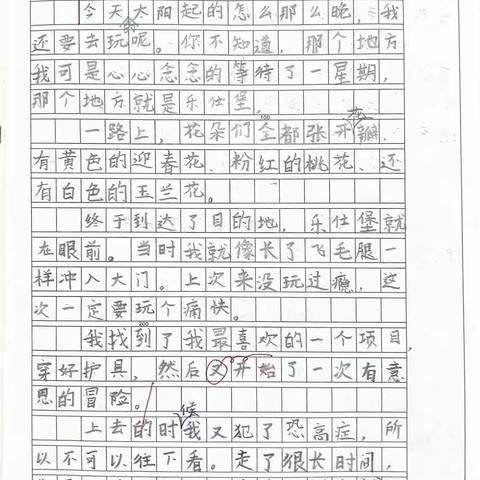 今天太阳起的怎么那么晚,我
还要去玩呢。你不知道,那个地方
我可是心心念念的等待了一星期,
那个地方就是乐仕堡。
100
一路上,花朵们全都张开花瓣.
有黄色的迎春花、粉红的桃花、还
有白色的玉兰花。
终于到达了目的地,乐仕堡就
在眼前。当时我就像长了飞毛腿一
样冲入大门。上次来没玩过瘾,这
次一定要玩个痛快。
200
我找到了我最喜欢的一个项目,
穿好护具,然后又开始了一次有意
思的冒险。
上去的时候我又犯了恐高症,所
以不可以往下看。走了很长时间,